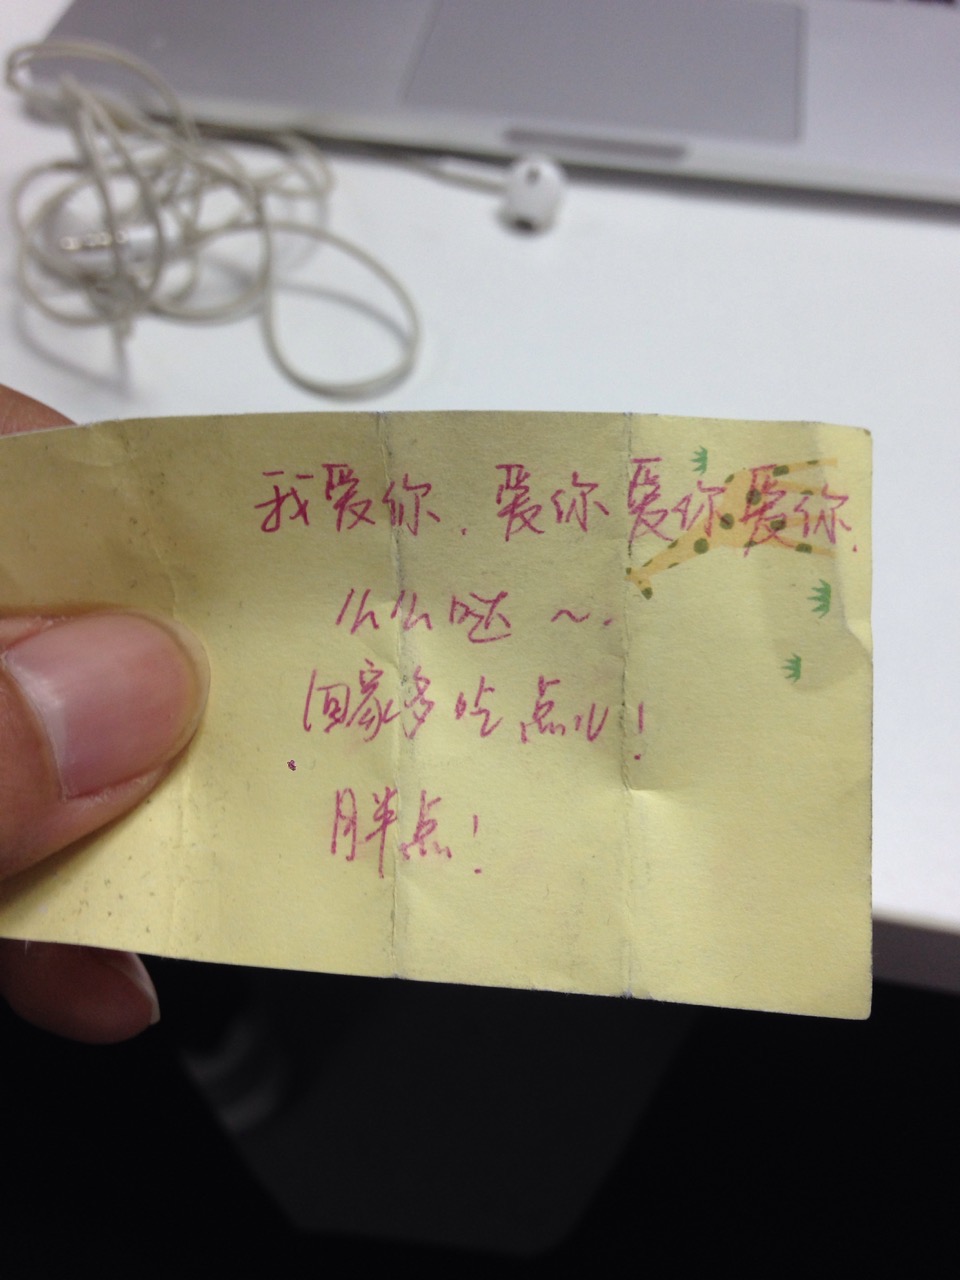 我爱你.爱你爱你爱你.
么么哒～.
回家多吃点儿!
胖点!